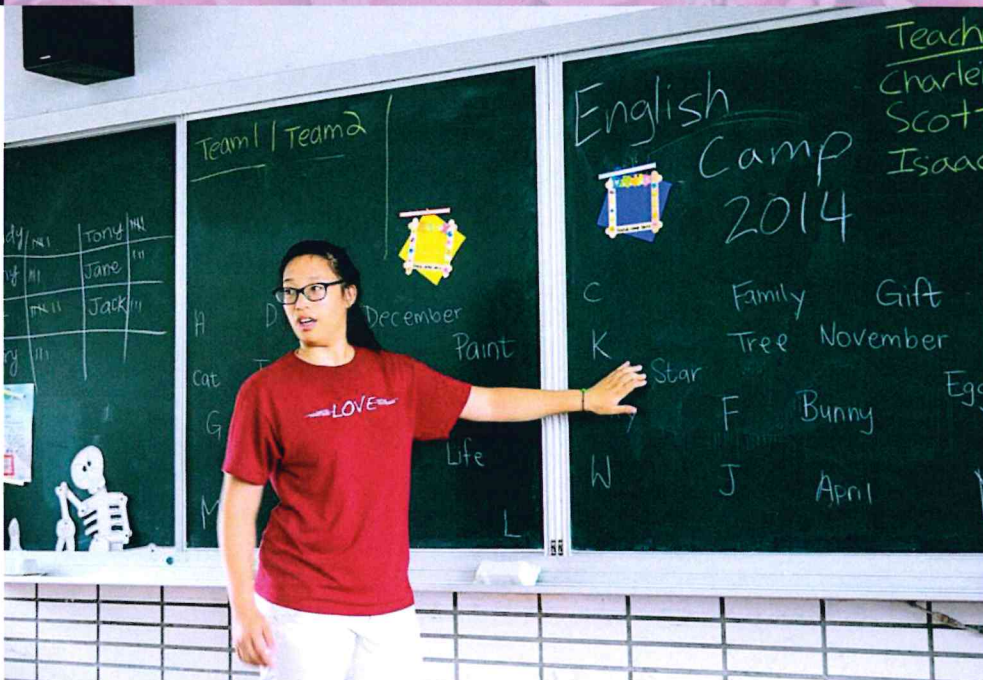 Team1 | Team2
Tony
Jane
Jack
A
D
December
Paint
Cat
G
Life
M
L
LOVE
English
Camp
2014
Scott
Isaac
C
Family
Gift
K
Tree
November
Star
Egg
F
Bunny
W
J
April